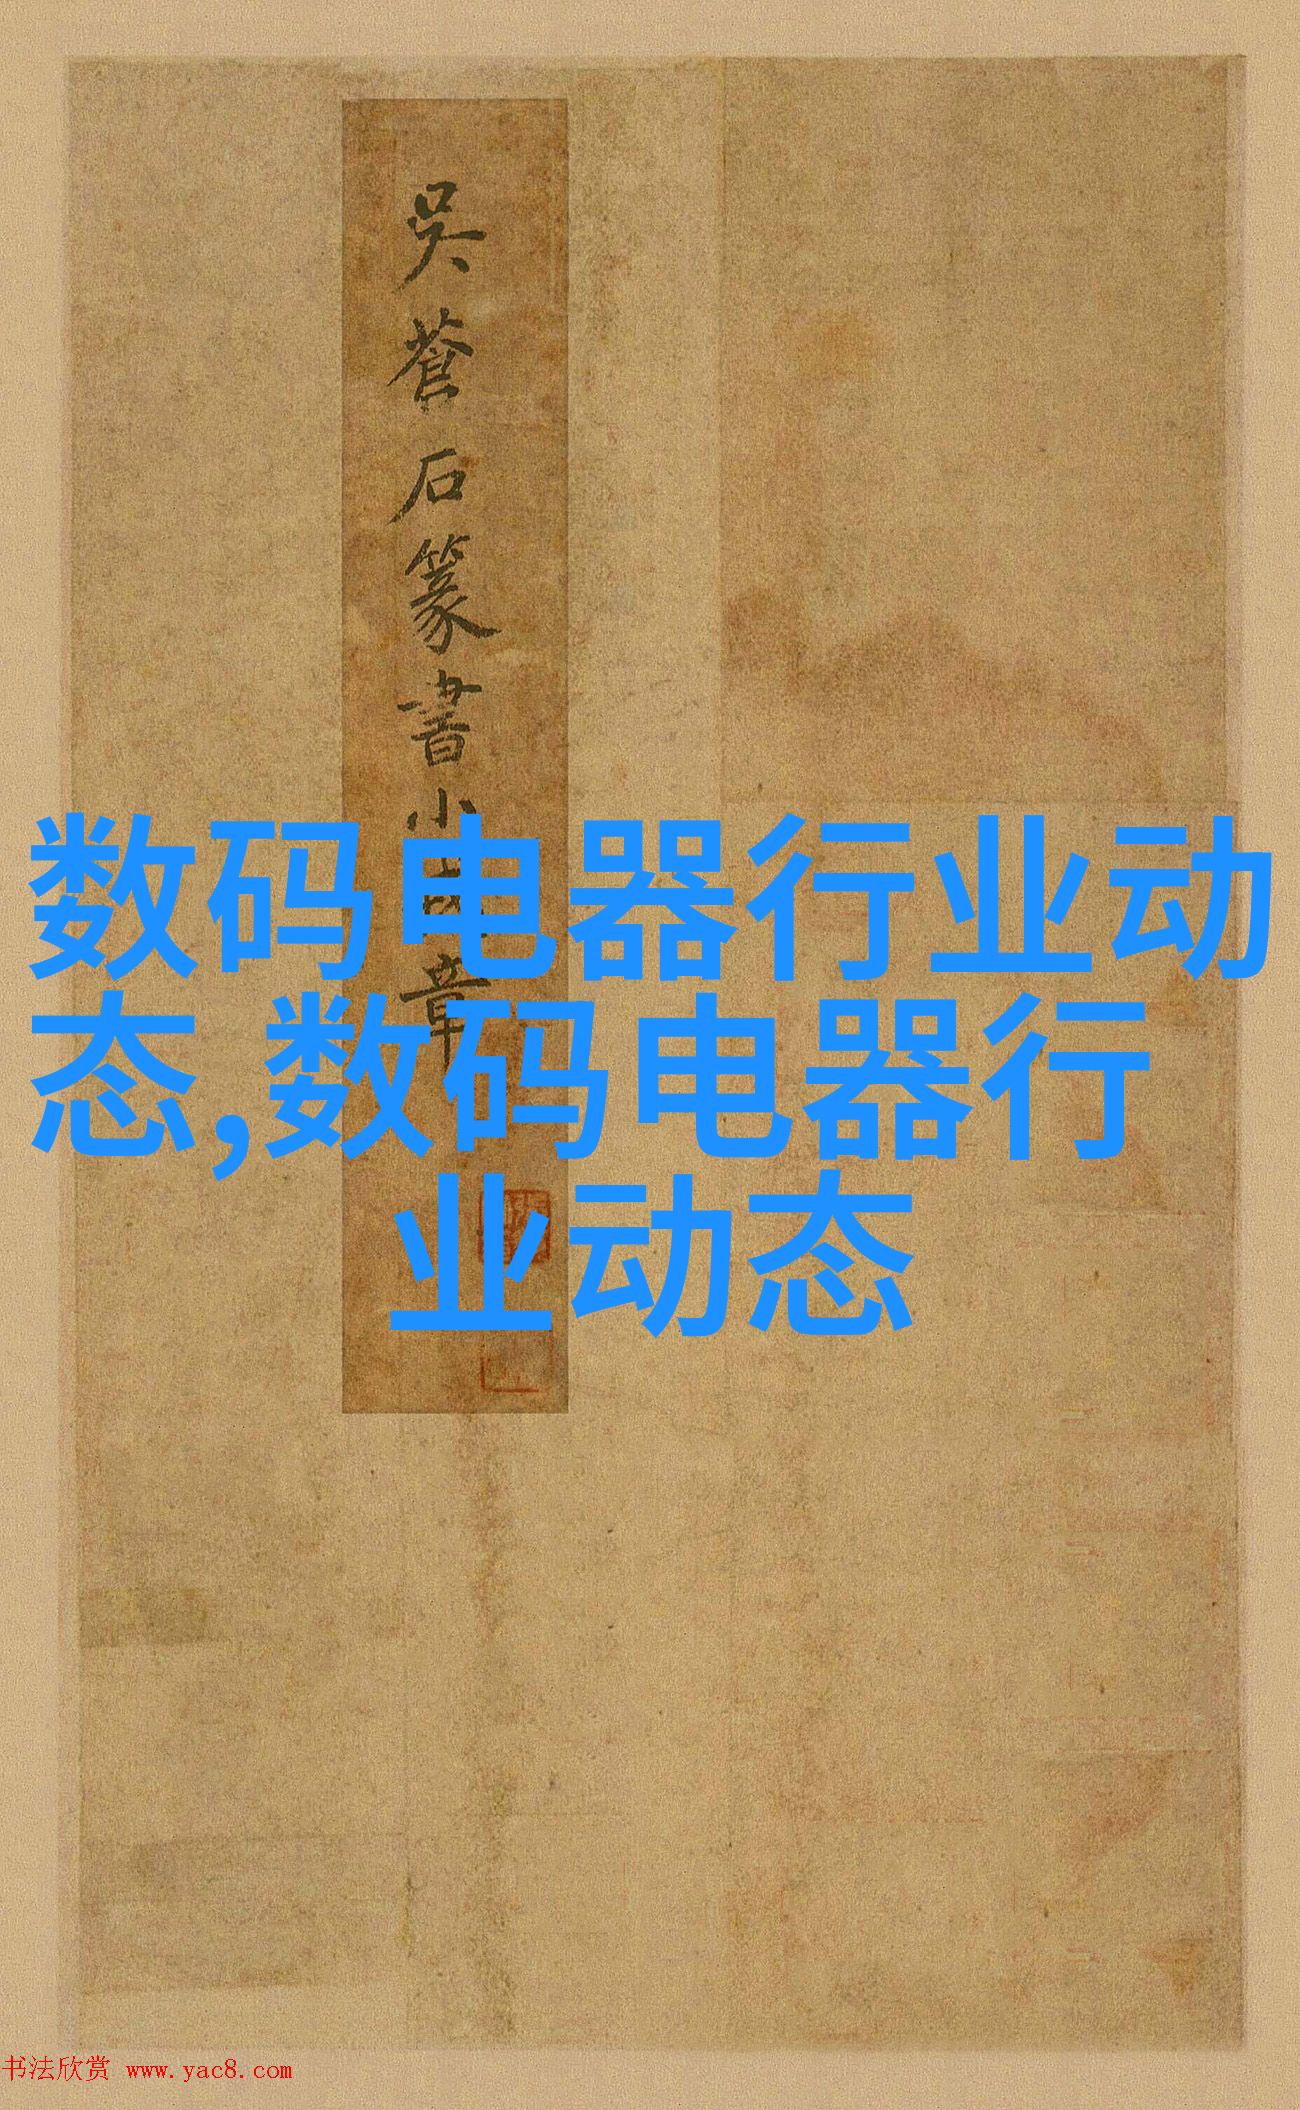 吳蒼石篆書小 章
数码电器行业动
态,数码电器行
业动态
书法欣赏 www.yac8.com